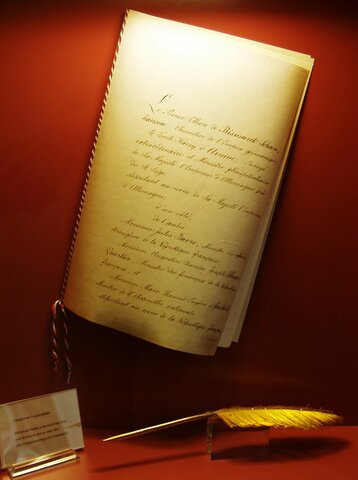 Le Prince Othon de Bismarck-Schoen-
hausen Chancelier de l'Empire germanique,
le Comte Harry d'Arnim, Envoyé
extraordinaire et Ministre plénipotentiaire
de Sa Majesté l'Empereur d'Allemagne près
du St. Siège,
stipulant au nom de Sa Majesté l'Empereur
d'Allemagne,
d'un côté,
de l'autre
Monsieur Jules Favre, Ministre des affaires
étrangères de la République française,
Monsieur Augustin Thomas Joseph Pouyer-
Quertier, Ministre des finances de la République
française, et
Monsieur Marc Thomas Eugène de Goulard,
Membre de l'Assemblée nationale
stipulant au nom de la République française
Mit dieser Feder unterzeichnete Fürst
von Bismarck am 10. Mai 1871
den Friedensvertrag mit Frankreich